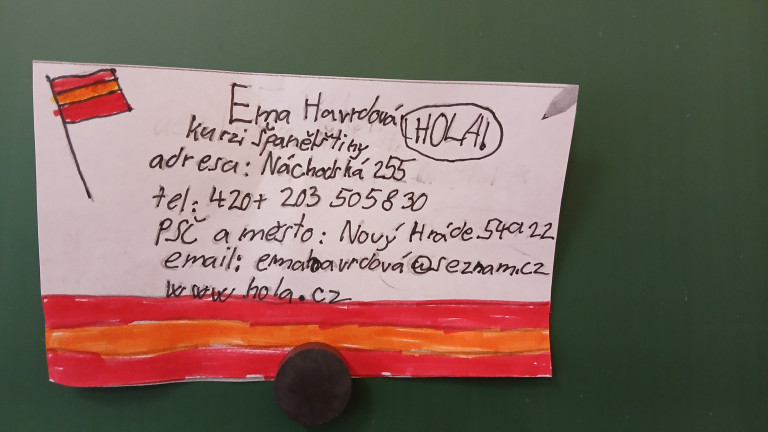 Ema Havrdová
¡HOLA!
kurzi španělštiny
adresa: Náchodská 255
tel: 420+ 203 505830
PSČ a město: Nový Hráde 549 22
email: emahavrdová@seznam.cz
www.hola.cz